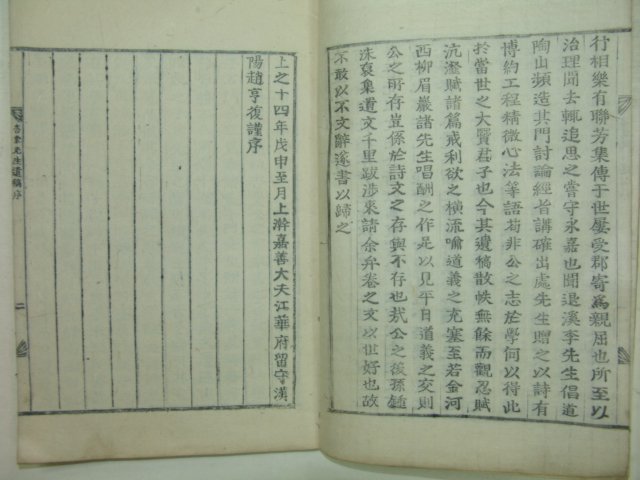 行相樂有聯芳集傳于世屢受郡寄爲親屈也所至以
治理聞去輒追思之嘗守永嘉也聞退溪李先生倡道
陶山頻造其門討論經旨講確出處先生贈之以詩有
博約工程精微心法等語苟非公之志於學何以得此
於當世之大賢君子也今其遺稿散帙無餘而觀忍賦
沆瀣賦諸篇戒利欲之橫流嘯道義之充塞至若金河
西柳眉巖諸先生唱酬之作足以見平日道義之交則
公之所存豈係於詩文之存與不存也哉公之後孫鍾
洙裒集遺文千里跋涉來請余弁卷之文以世好也故
不敢以不文辭遂書以歸之
上之十四年戊申至月上澣嘉善大夫江華府留守漢
陽趙亨復謹序
先生遺稿序
二